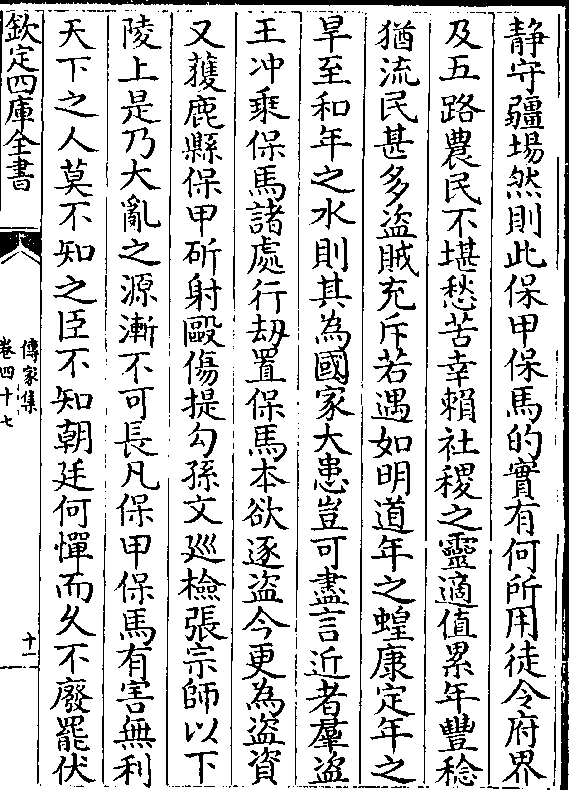 静守疆埸然則此保甲保馬的實有何所用徒令府界
及五路農民不堪愁苦幸賴社稷之靈適值累年豐稔
猶流民甚多盗賊充斥若遇如明道年之蝗康定年之
旱至和年之水則其為國家大患豈可盡言近者羣盗
王冲乘保馬諸處行刼置保馬本欲逐盗今更為盗資
又獲鹿縣保甲斫射毆傷提勾孫文廵檢張宗師以下
陵上是乃大亂之源漸不可長凡保甲保馬有害無利
天下之人莫不知之臣不知朝廷何憚而久不廢罷伏
欽定四庫全書
傳家集
卷四十七
十一